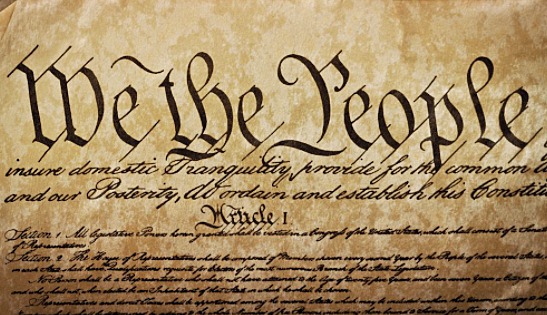 We the People
insure domestic Tranquility, provide for the common
and our Posterity, do ordain and establish this Constitu
Article I
Section 1 All legislative Powers herein granted shall be vested in a Congress of the United States, which shall consist of a Senate
of Representatives
Section 2 The House of Representatives shall be composed of Members chosen every second Year by the People of the several States,
in each State shall have Qualifications requisite for Electors of the most numerous Branch of the State Legislature
No Person shall be a Representative who shall not have attained to the Age of twenty five Years, and been seven Years a Citizen of
and who shall not, when elected, be an Inhabitant of that State in which he shall be chosen
Representatives and direct Taxes shall be apportioned among the several States which may be included within this Union, according to